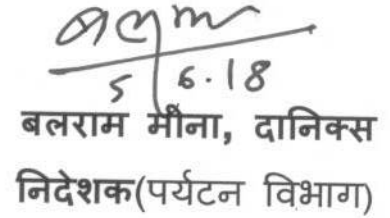 बलराम
5/6.18
बलराम मीना, दानिक्स
निदेशक(पर्यटन विभाग)